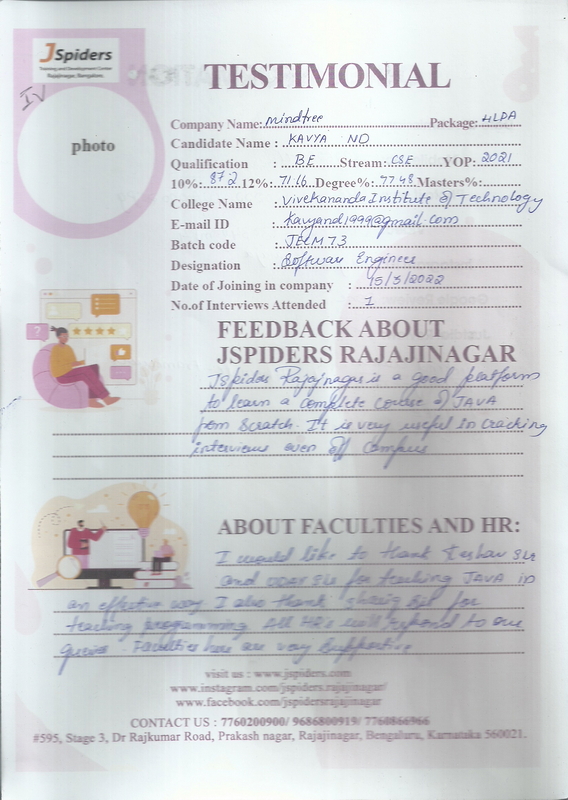 JSpiders
Training and Development Center
Rajajinagar, Bangalore.
TESTIMONIAL
IV
photo
Company Name: Mindtree Package: 4LPA
Candidate Name : KAVYA ND
Qualification : B.E Stream: CSE YOP: 2021
10%: 87.2 12%: 71.16 Degree%: 77.48 Masters%:
College Name : Vivekananda Institute of Technology
E-mail ID : kavyand1999@gmail.com
Batch code : JECM73
Designation : Software Engineer
Date of Joining in company : 15/3/2022
No.of Interviews Attended : 1
FEEDBACK ABOUT
JSPIDERS RAJAJINAGAR
Jspiders Rajajinagar is a good platform
to learn a complete course of JAVA
from scratch. It is very useful in cracking
interviews even off campus
ABOUT FACULTIES AND HR:
I would like to thank Keshav Sir
and Sir for teaching JAVA in
an effective way I also thank Sir for
teaching programming All HRs will respond to our
queries. Faculties here are very supportive
visit us : www.jspiders.com
www.instagram.com/jspiders.rajajinagar/
www.facebook.com/jspidersrajajinagar
CONTACT US : 7760200900/ 9686800919/ 7760866966
#595, Stage 3, Dr Rajkumar Road, Prakash nagar, Rajajinagar, Bengaluru, Karnataka 560021.